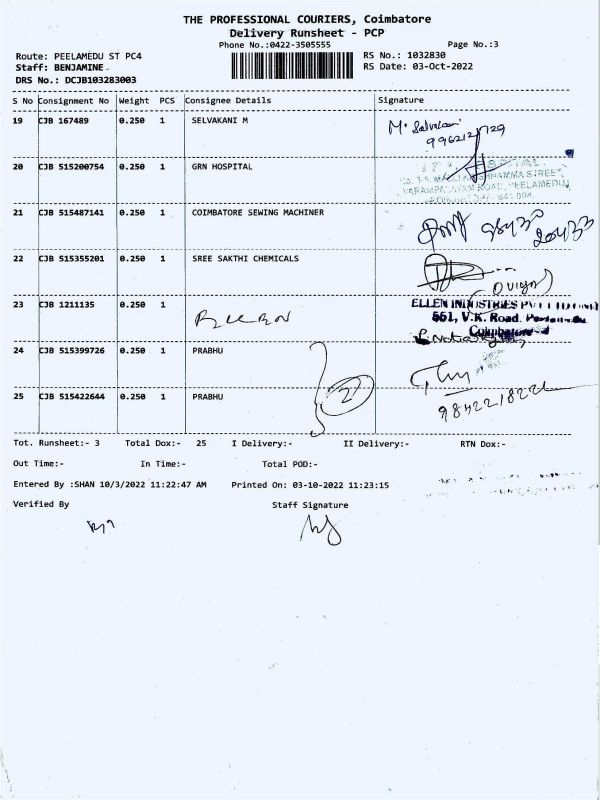 THE PROFESSIONAL COURIERS, Coimbatore
Delivery Runsheet - PCP
Phone No.:0422-3505555
Page No.:3
Route: PEELAMEDU ST PC4
RS No.: 1032830
Staff: BENJAMINE.
RS Date: 03-Oct-2022
DRS No.: DCJB103283003
S No Consignment No Weight PCS Consignee Details Signature
19 CJB 167489 0.250 1 SELVAKANI M
M. Selvakani
20 CJB 515200754 0.250 1 GRN HOSPITAL
STREET
PEELAMEDU
21 CJB 515487141 0.250 1 COIMBATORE SEWING MACHINER
22 CJB 515355201 0.250 1 SREE SAKTHI CHEMICALS
23 CJB 1211135 0.250 1
ELLEN INDUSTRIES
551, V.K. Road.
Coimbatore
24 CJB 515399726 0.250 1 PRABHU
25 CJB 515422644 0.250 1 PRABHU
2
Tot. Runsheet:- 3 Total Dox:- 25 I Delivery:- II Delivery:- RTN Dox:-
Out Time:- In Time:- Total POD:-
Entered By :SHAN 10/3/2022 11:22:47 AM Printed On: 03-10-2022 11:23:15
Verified By Staff Signature